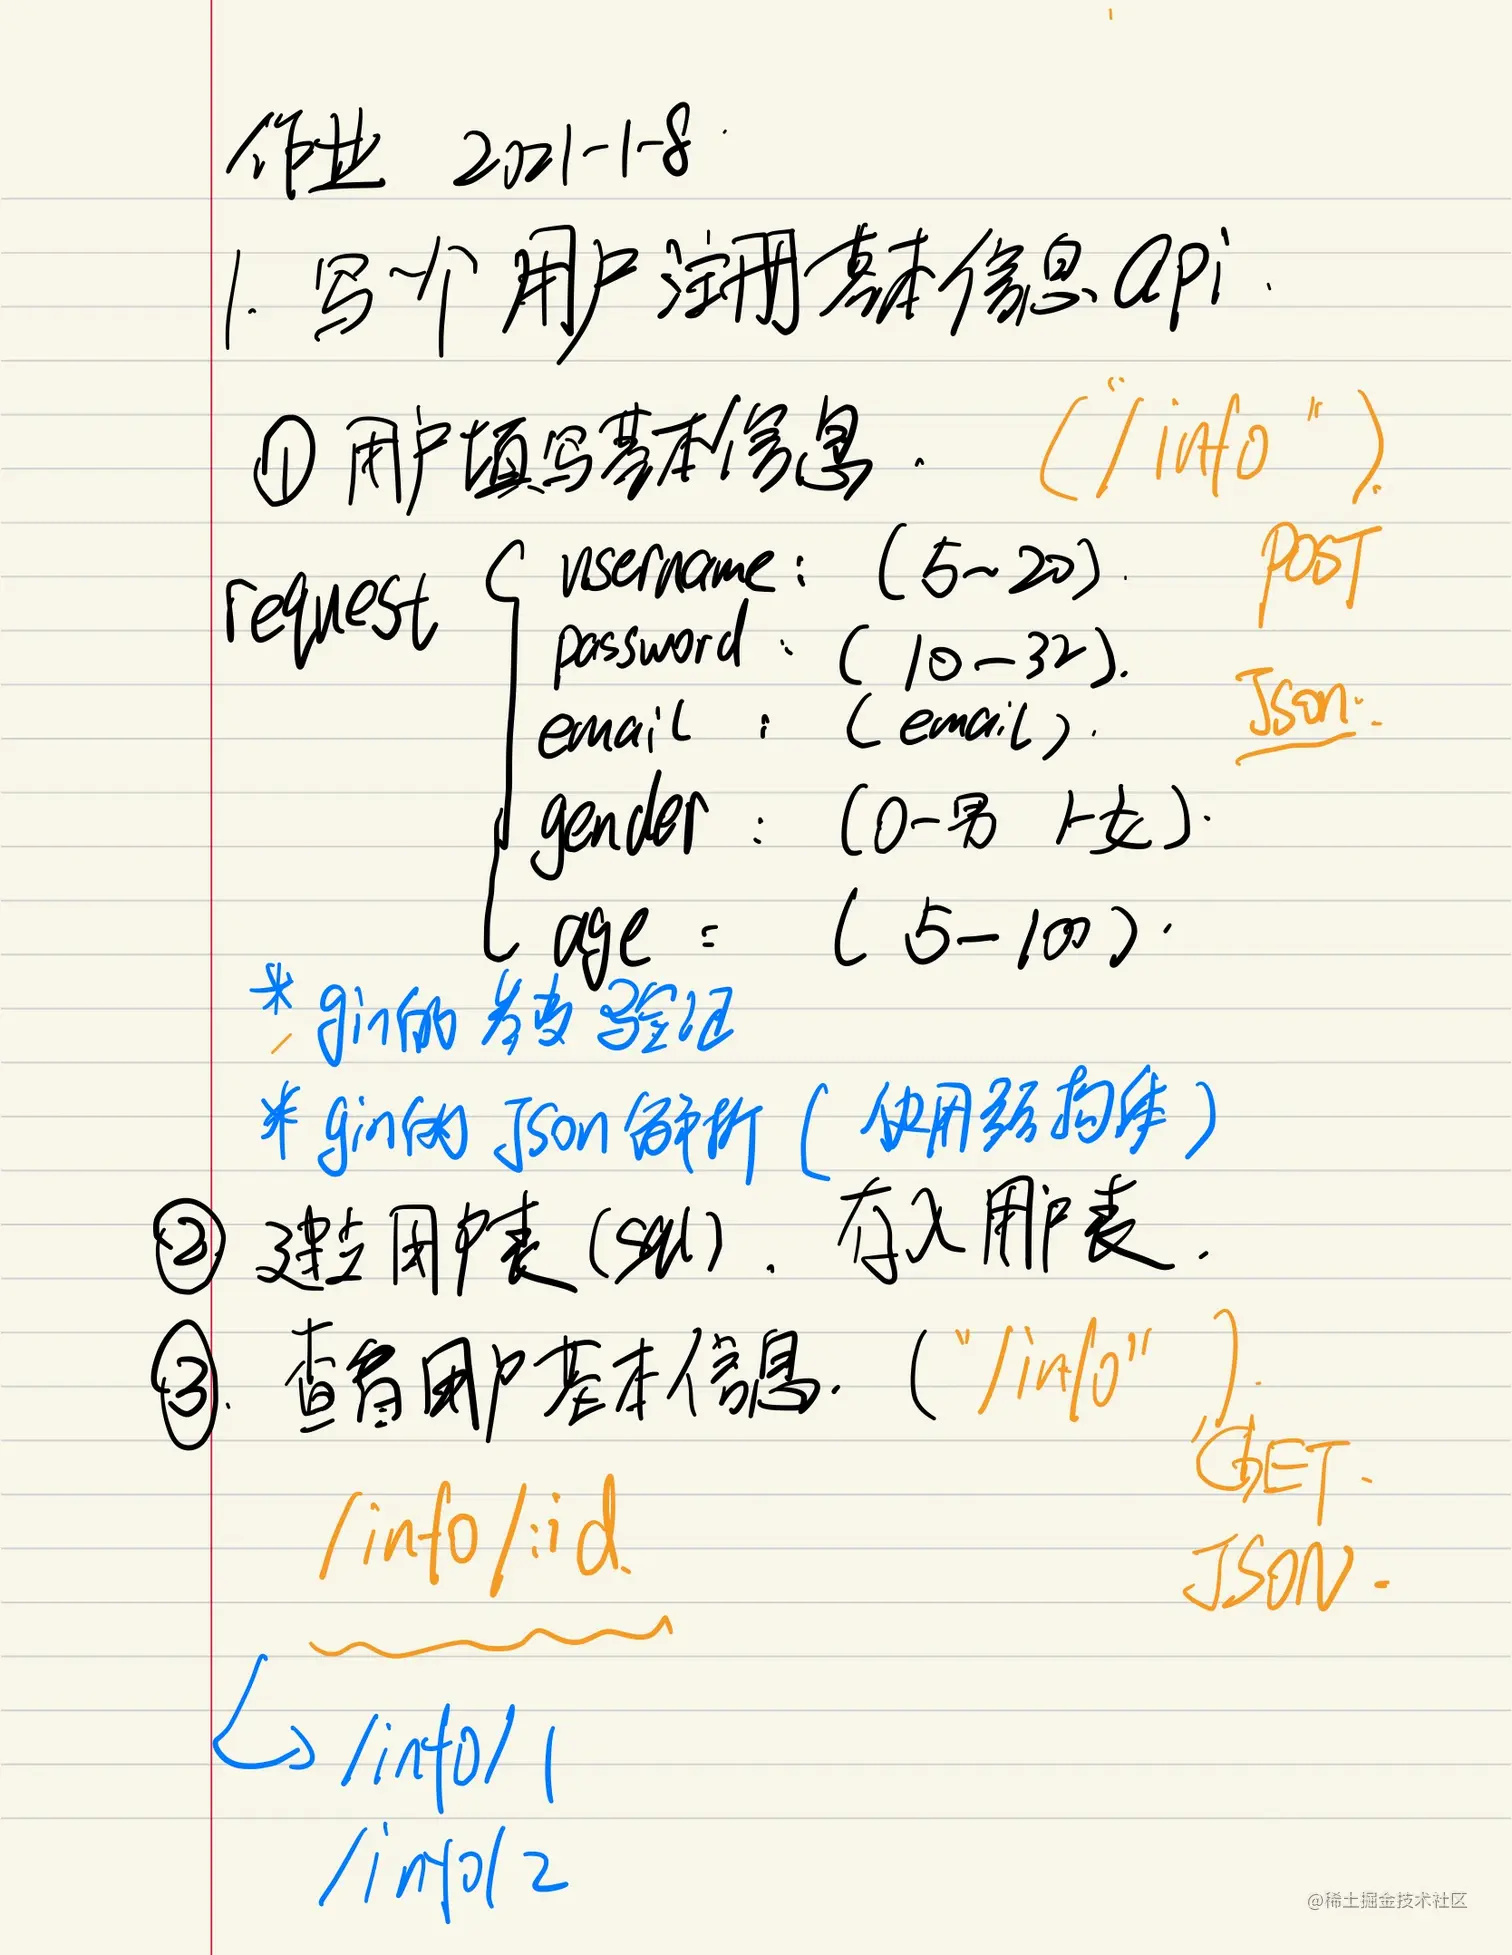 作业 2021-1-8.
1. 写一个用户注册基本信息api.
① 用户填写基本信息. ("/info").
POST
Json.
request { username: (5~20).
password: (10-32).
email: (email).
gender: (0-男 1-女).
age: (5-100).
* gin的参数验证
* gin的Json解析(使用结构体)
② 建立用户表(sql). 存入用户表.
③. 查看用户基本信息. ("/info").
GET.
JSON.
/info/:id.
/info/1
/info/2
@稀土掘金技术社区